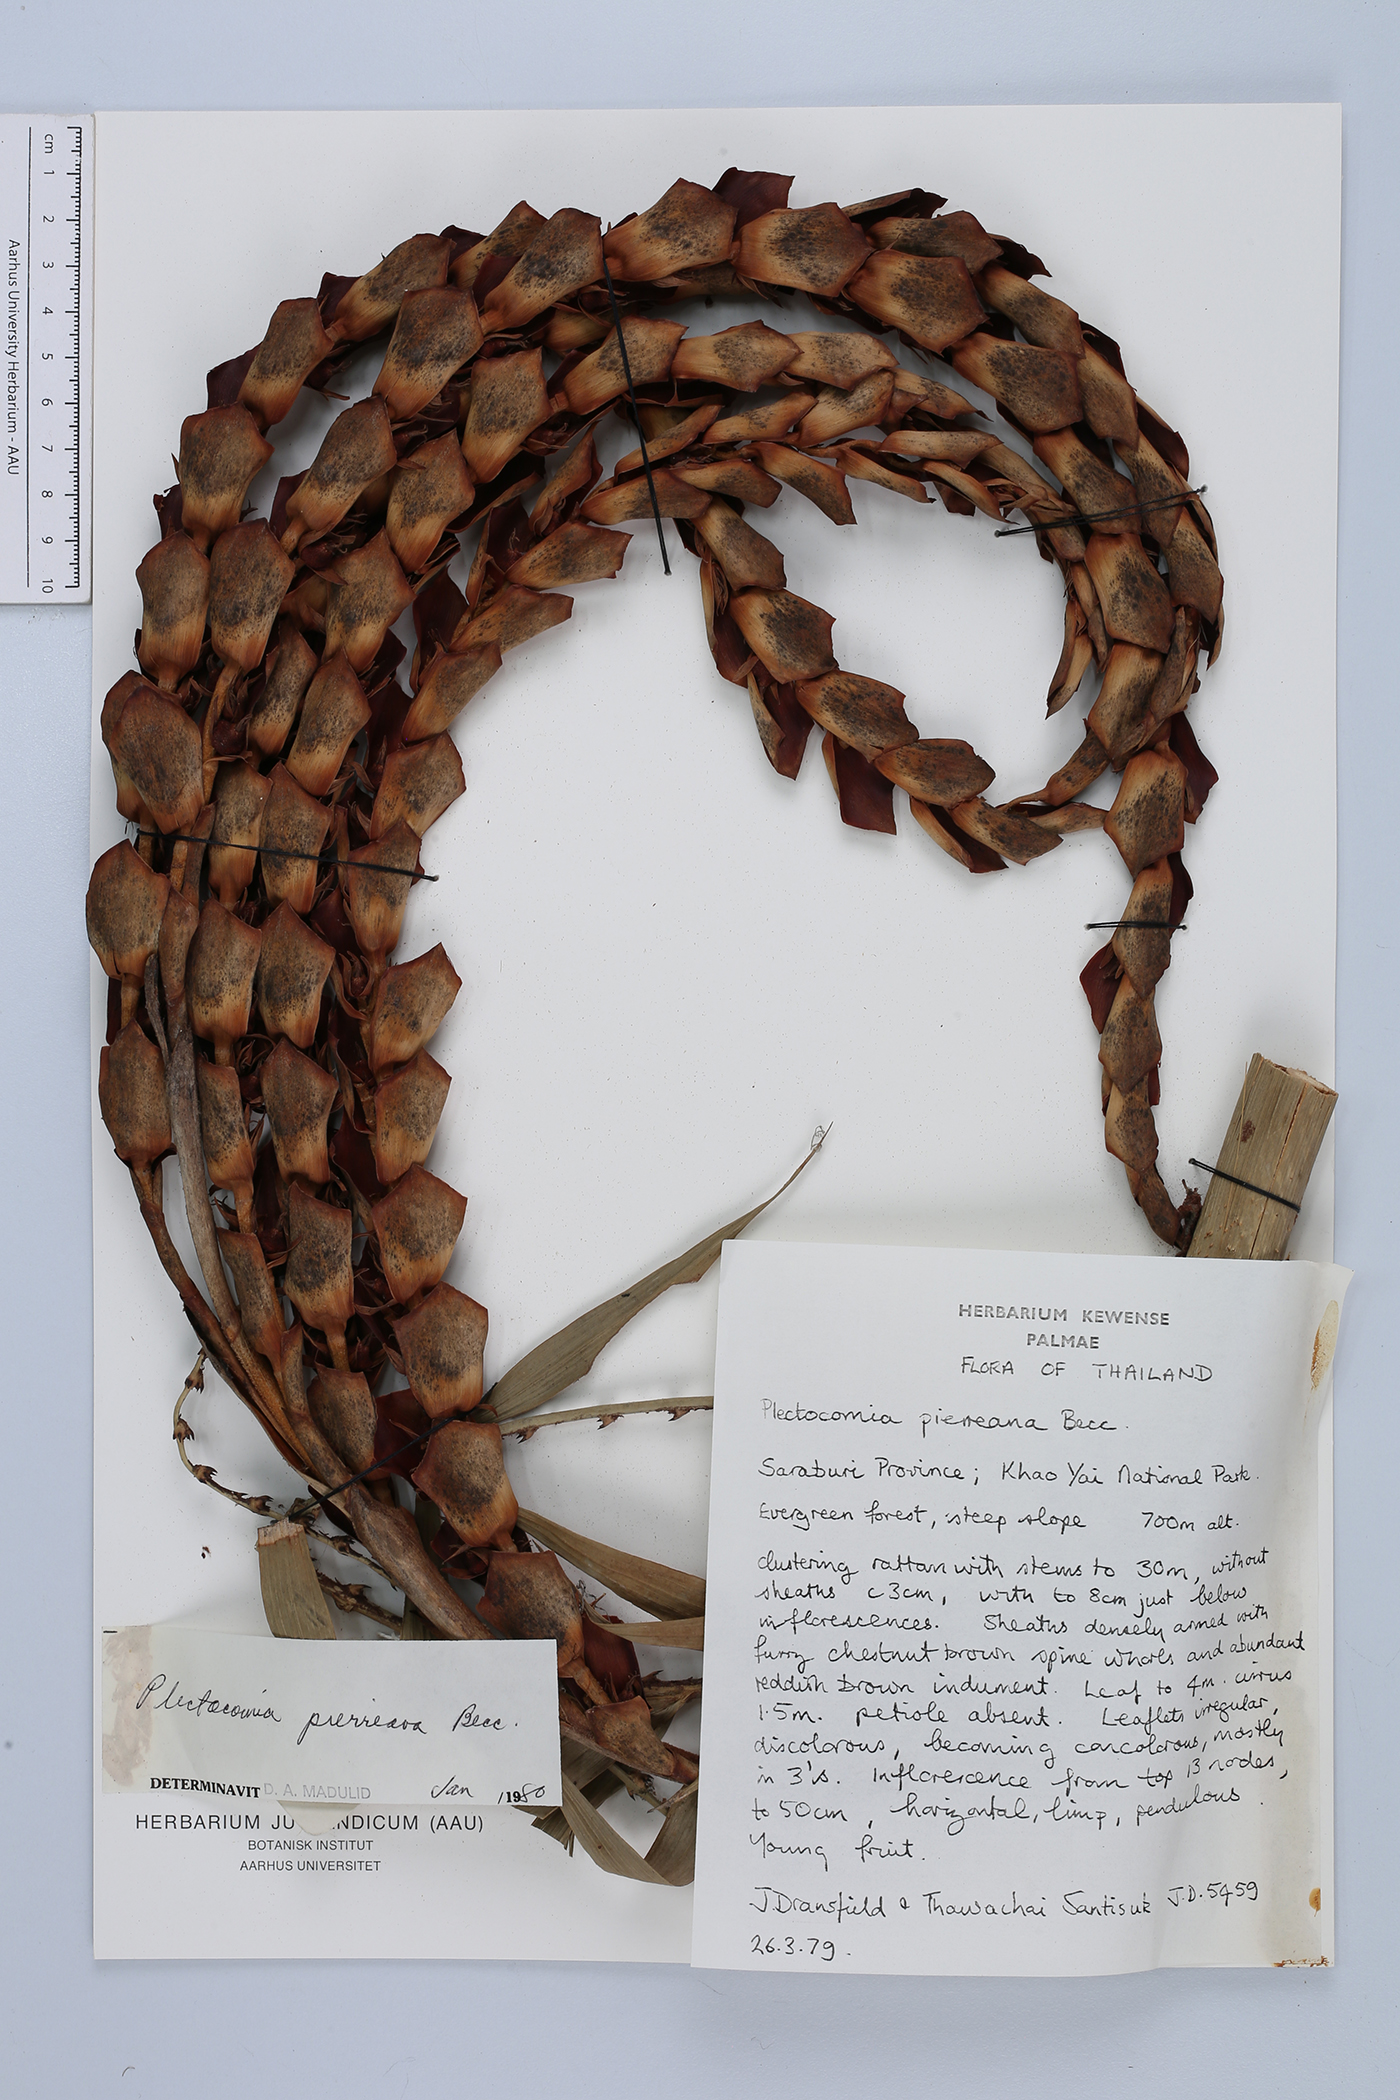 cm 1 2 3 4 5 6 7 8 9 10
Aarhus University Herbarium - AAU
HERBARIUM KEWENSE
PALMAE
FLORA OF THAILAND
Plectocomia pierreana Becc.
Saraburi Province; Khao Yai National Park.
Evergreen forest, steep slope 700m alt.
clustering rattan with stems to 30m, without
sheaths c 3cm, with to 8cm just below
inflorescences. Sheaths densely armed with
furry chestnut brown spine whorls and abundant
reddish brown indument. Leaf to 4m. cirrus
1.5m. petiole absent. Leaflets irregular,
discolorous, becoming concolorous, mostly
in 3's. Inflorescence from top 13 nodes,
to 50cm, horizontal, limp, pendulous.
Young fruit.
J. Dransfield & Thawachai Santisuk J.D. 5459
26.3.79.
Plectocomia pierreana Becc.
DETERMINAVIT D. A. MADULID Jan /1980
HERBARIUM JU NDICUM (AAU)
BOTANISK INSTITUT
AARHUS UNIVERSITET